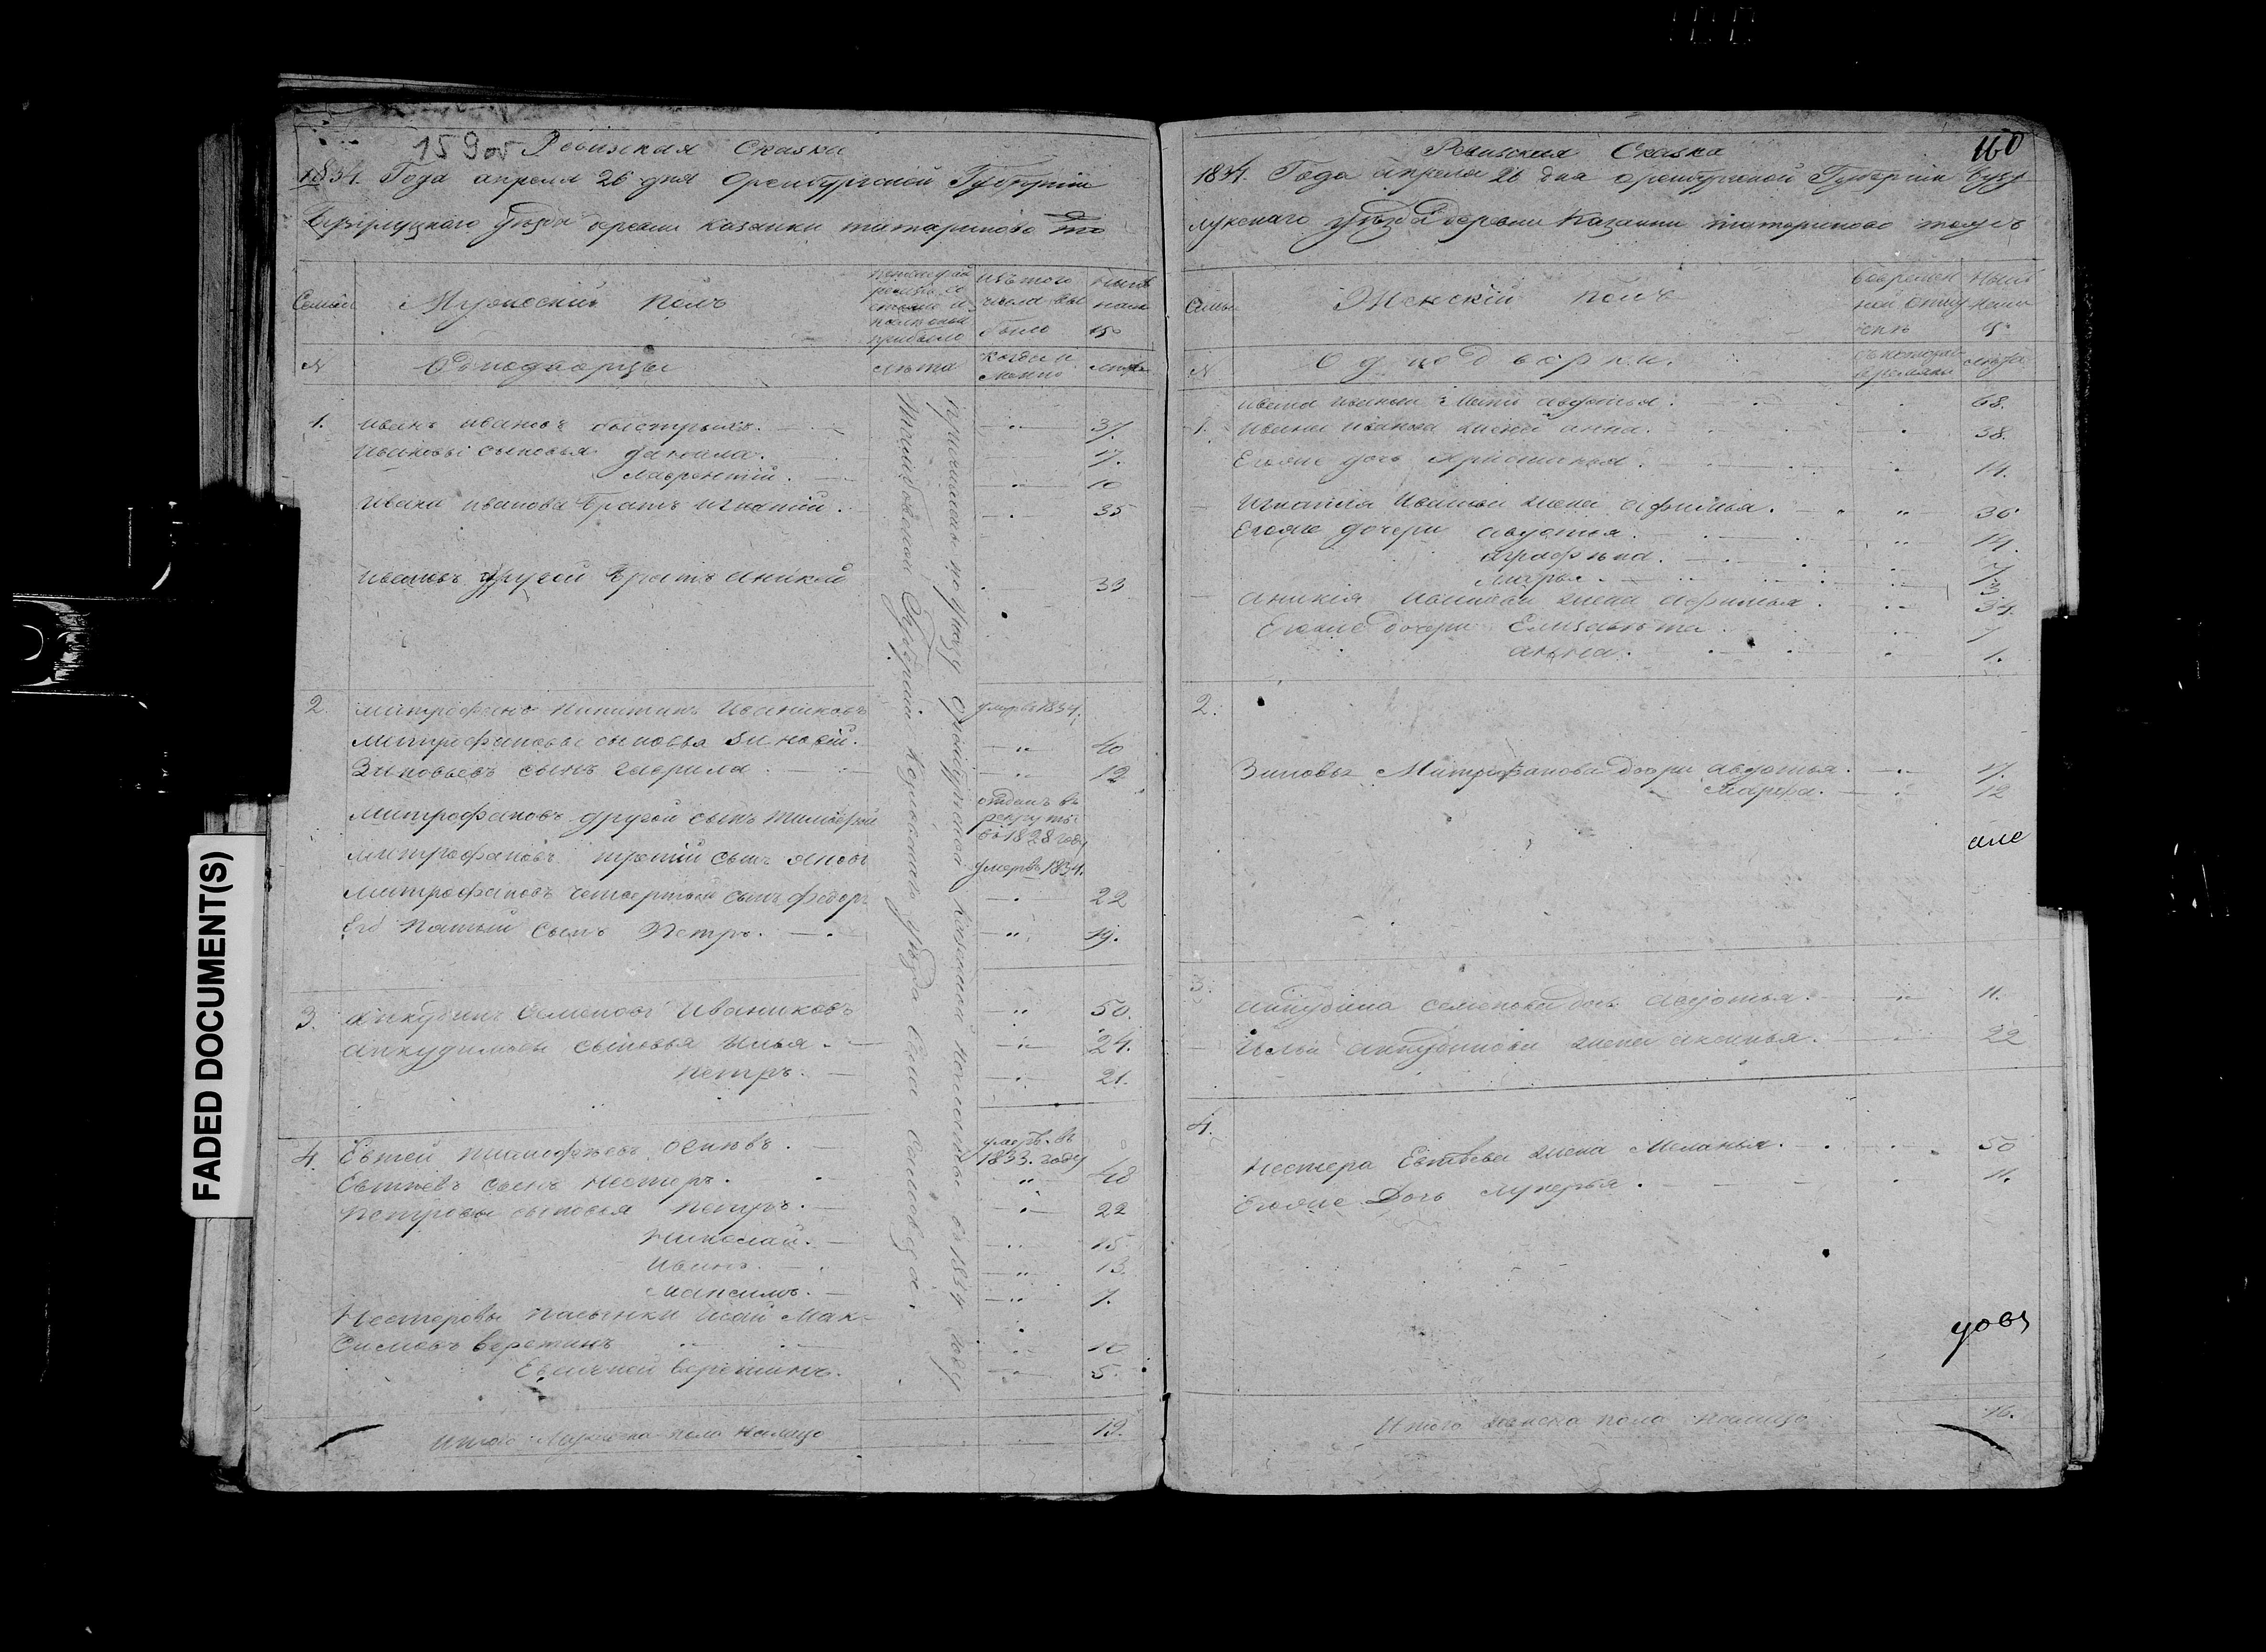 159об Ревизская Сказка
1834. Года апреля 26 дня Оренбургской Губернии
Бузулуцкаго Уезда деревни казанки татариново то
Семьи
Мужеский полъ
изъ того числа выбыло
ныне на лицо
№
Однодворцы
лета
когда именно
лета
1. иванъ ивановъ быстрыхъ. 37.
Ивановы сыновья данила. 17.
Лаврентий. 10
Ивана иванова братъ игнатий. 35
Ивановъ другой братъ аникей 33
2. митрофанъ никитинъ Иваниковъ умеръ 1834.
митрофановы сыновья Зиновий. 40
Зиновьевъ сынъ гаврила 12
митрофановъ другой сынъ тимофей отданъ въ рекруты въ 1828 году
митрофановъ третий сынъ яковъ умеръ 1834.
митрофановъ четвертый сынъ федоръ 22
Его пятый сынъ Петръ. 19.
3. анкудинъ Семеновъ Иваниковъ 50.
анкудиновы сыновья Илья. 24.
петръ. 21.
4. Евтей умеръ. въ 1833. году
Евтеевъ сынъ несторъ. 48
петровы сыновья петръ. 22
Николай. 15
Иванъ. 13.
Максимъ. 7.
Нестеровы пасынки Исай Мак-
симовъ веретинъ 10
Евсигней веретинъ. 5.
Итого Мужеска пола налицо 19.
Причислены по указу оренбургской казенной палаты в 1834 году
Тамбовской Губернии Козловскаго уезда села
FADED DOCUMENT(S)
Ревизская Сказка
160
1834. Года апреля 26 дня оренбургской Губернии Бузу
лукскаго уезда деревни Казанки татариново тожъ
Семьи
Женский полъ
Ныне на лицо
№
Однодворки.
лета
ивана иванова мать авдотья. 68.
1. Ивана иванова жена анна. 38.
Егоже дочь Христинья. 14.
Игнатия Иванова жена афимья. 36
Егоже дочери авдотья. 14.
аграфена. 7
Марья. 3.
аникия иванова жена афимья. 34.
Егоже дочери Елизавета 7
анна. 1.
2.
Зиновья Митрофанова дочери авдотья. 17.
Марфа. 12
3.
анкудина семенова дочь авдотья. 11.
Ильи анкудинова жена аксинья. 22
4.
Нестера Евтеева жена Меланья. 50
Егоже Дочь лукерья. 11.
Итого женска пола налицо 16.